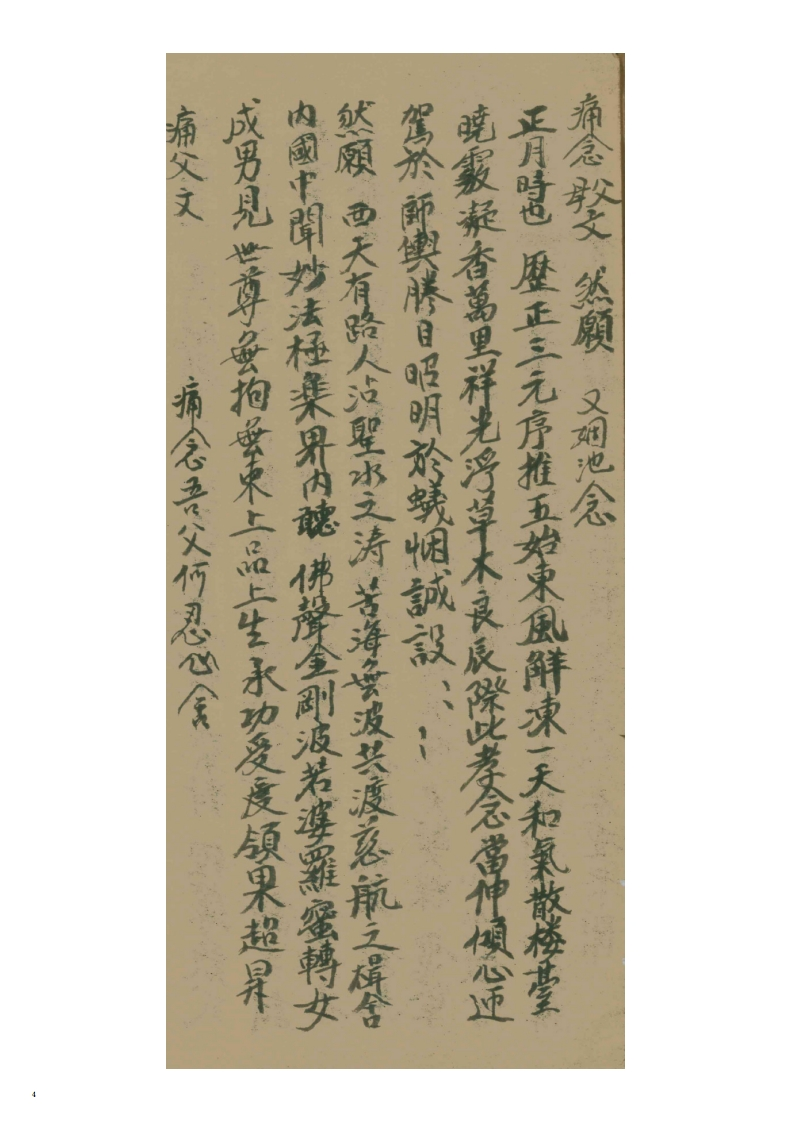 痛念敬父文　然願　又姻池念
正月時也　歷正三元序推五始東風解凍一天和氣散樓臺
曉靉凝香萬里祥光浮草木良辰際此孝念當伸傾心迎
駕於師輿勝日昭明於蟻悃誠設〻〻
然願　西天有路人沾聖水之濤苦海無波共渡慈航之楫舍
內國中聞妙法極樂界內聽佛聲金剛波若婆羅蜜轉女
成男見世尊無拘無束上品上生承功受度領果超昇
痛父文　痛念吾父何忍忘舍
4